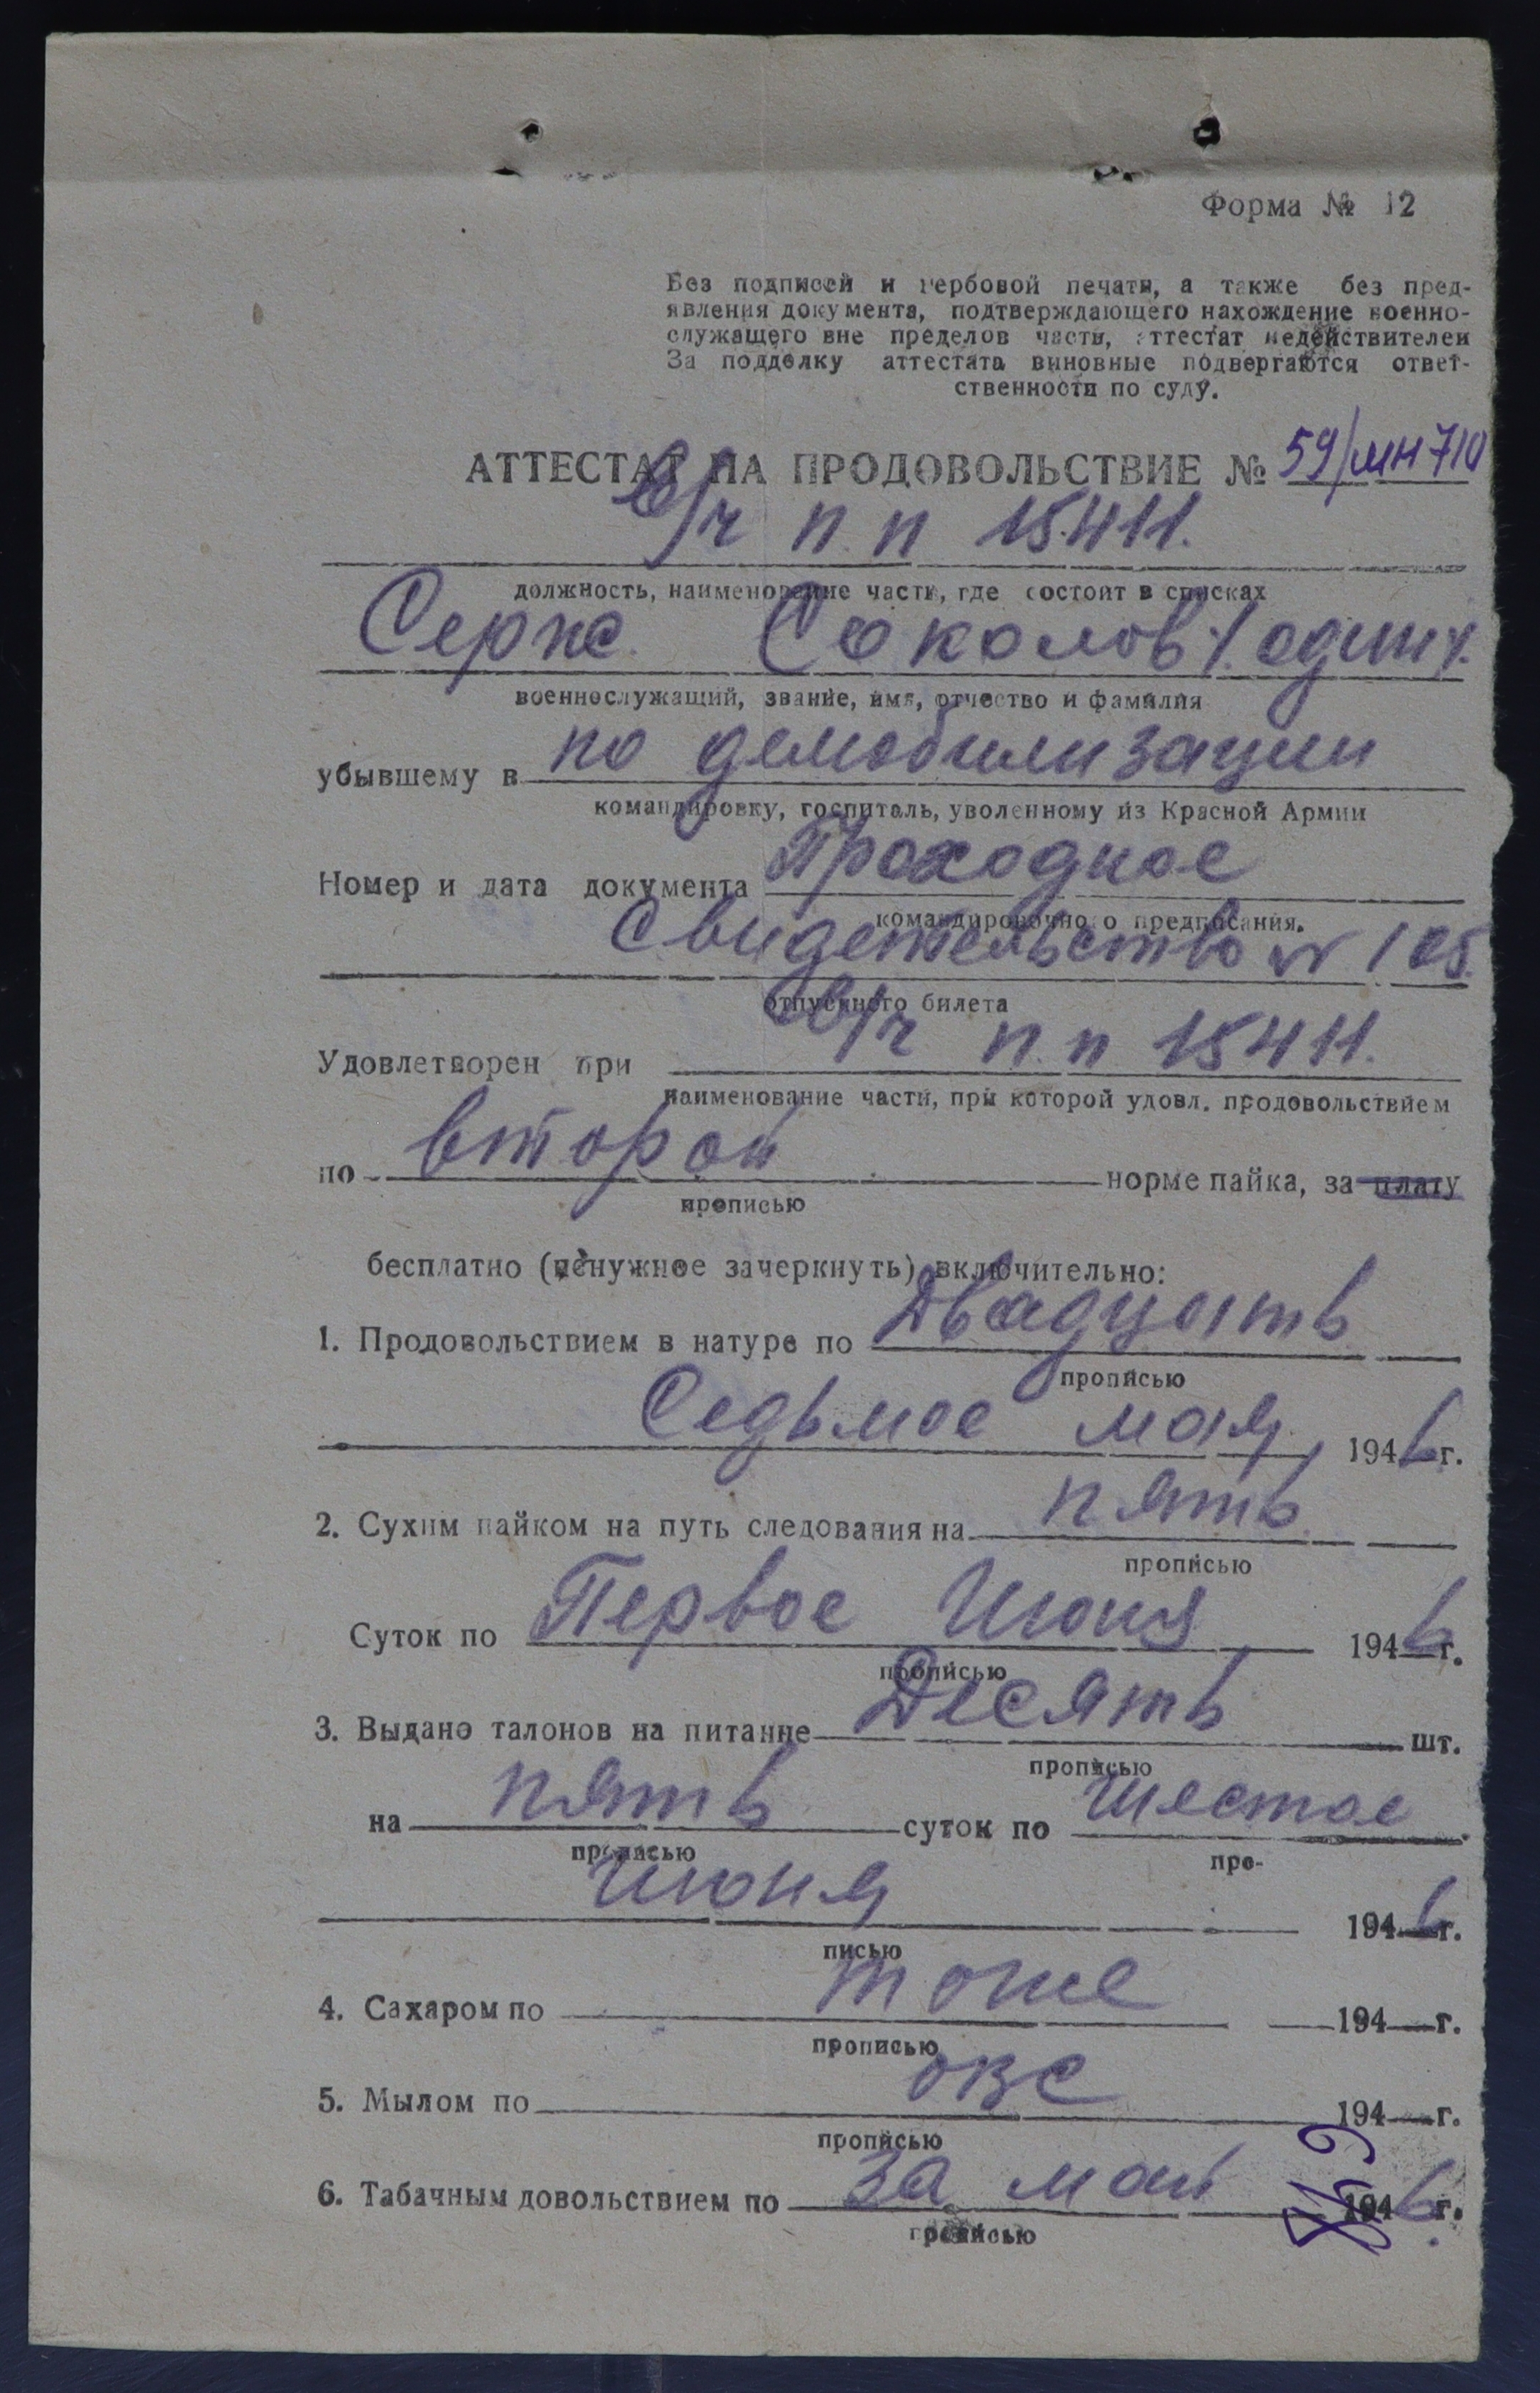 Форма № 12
Без подписей и гербовой печати, а также без пред-
явления документа, подтверждающего нахождение военно-
служащего вне пределов части, аттестат недействителен
За подделку аттестата виновные подвергаются ответ-
ственности по суду.
АТТЕСТАТ НА ПРОДОВОЛЬСТВИЕ № 59/мн710
в/ч п.п 15411.
должность, наименование части, где состоит в списках
Серж. Соколов /.один/.
военнослужащий, звание, имя, отчество и фамилия
убывшему в по демобилизации
командировку, госпиталь, уволенному из Красной Армии
Номер и дата документа Проходное
командировочного предписания.
Свидетельство № 105.
отпускного билета
Удовлетворен при в/ч п.п 15411.
наименование части, при которой удовл. продовольствием
по второй норме пайка, за плату
прописью
бесплатно (ненужное зачеркнуть) включительно:
1. Продовольствием в натуре по Двадцать
прописью
Седьмое мая 1946 г.
2. Сухим пайком на путь следования на пять
прописью
Суток по Первое Июня 1946 г.
прописью
3. Выдано талонов на питание Десять шт.
прописью
на пять суток по шестое
прописью про-
июня 1946 г.
писью
4. Сахаром по тоже 194 г.
прописью
5. Мылом по 194 г.
прописью
6. Табачным довольствием по за май 1946 г.
прописью